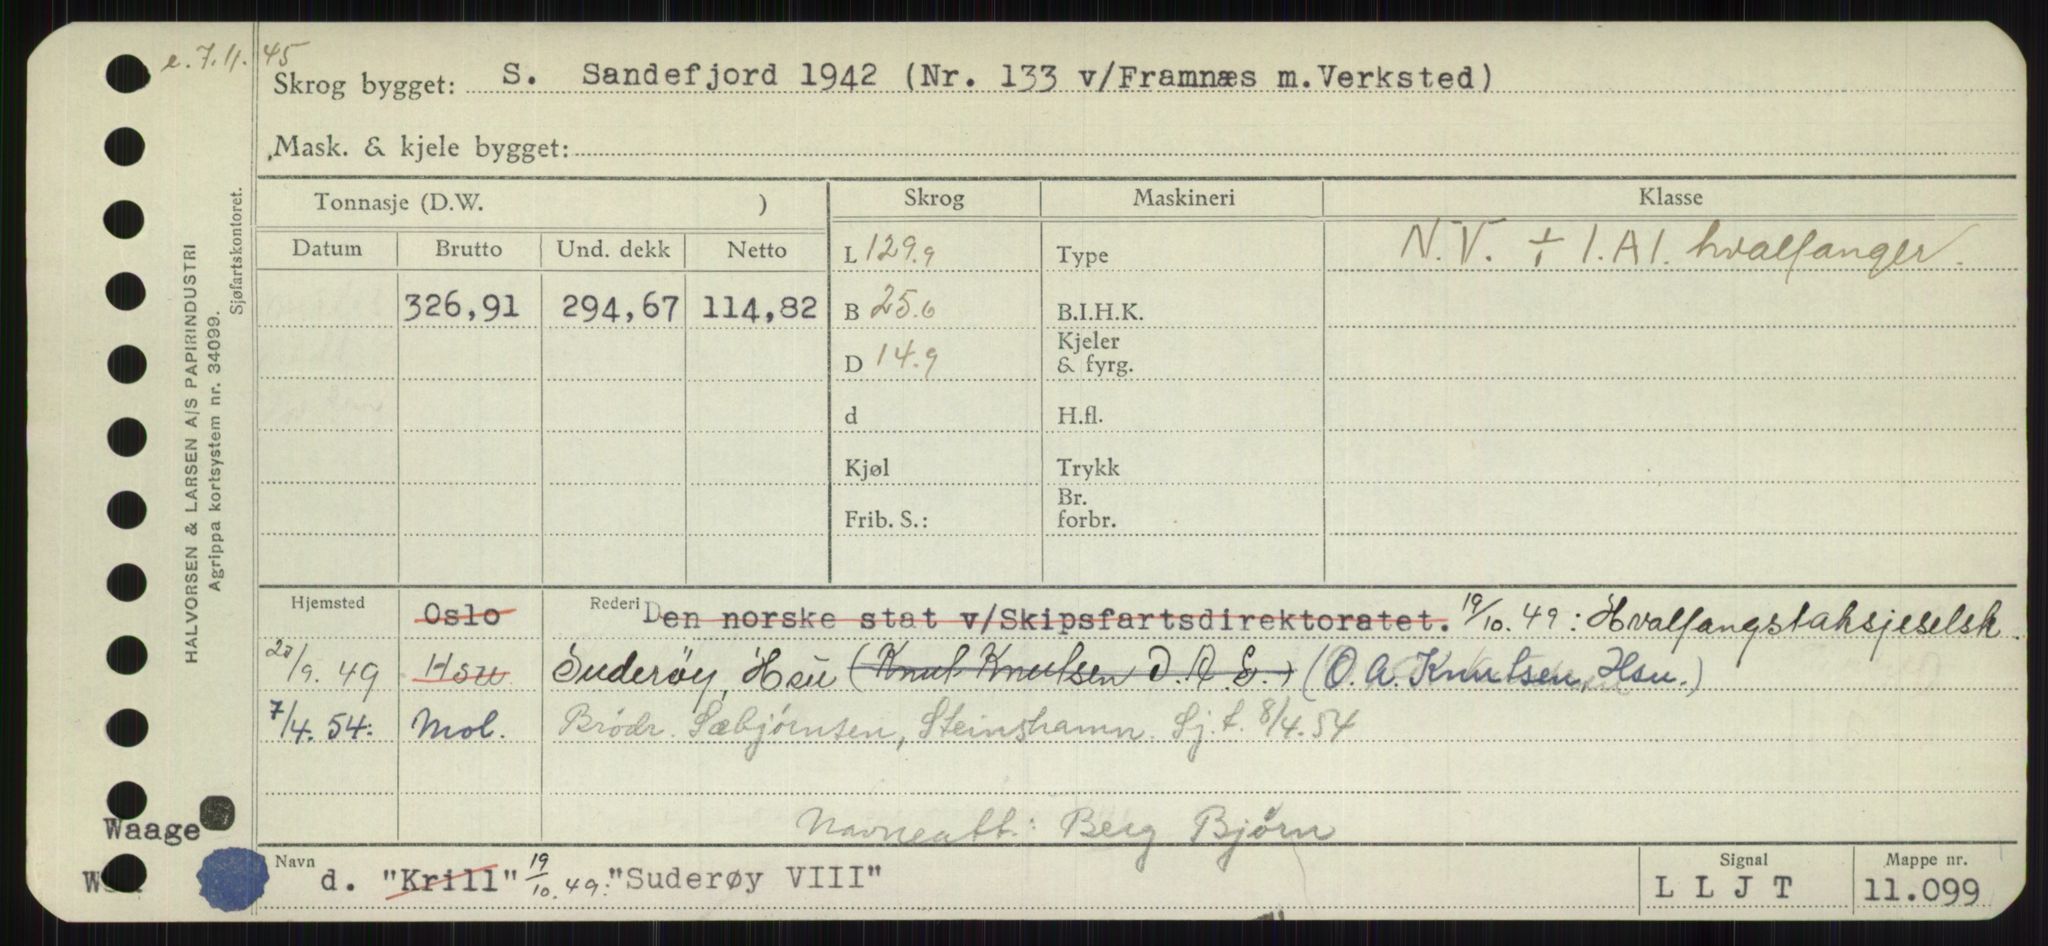 e. 7.11.45
Skrog bygget: S. Sandefjord 1942 (Nr. 133 v/Framnæs m.Verksted)
Mask. & kjele bygget:
Tonnasje (D.W. )
Skrog
Maskineri
Klasse
Datum
Brutto
Und. dekk
Netto
L 129.9
Type
N.V. + 1.A1. hvalfanger.
326,91
294,67
114,82
B 25.0
B.I.H.K.
D 14.9
Kjeler
& fyrg.
d
H.fl.
Kjøl
Trykk
Frib. S.:
Br.
forbr.
Hjemsted
Oslo
Rederi Den norske stat v/Skipsfartsdirektoratet. 19/10.49: Hvalfangstaksjeselsk.
20/9.49 Hsu Suderøy, Hsu (Knut Knutsen O.A.S.) (O.A. Knutsen, Hsu.)
7/4.54: Mol. Brødr. Sæbjørnsen, Steinshamn. Sj.f. 8/4.54
Navneatt.: Berg Bjørn
Waage
Navn d. "Krill" 19/10.49: "Suderøy VIII"
Signal
L L J T
Mappe nr.
11.099
HALVORSEN & LARSEN A/S PAPIRINDUSTRI
Agrippa kortsystem nr. 34099.
Sjøfartskontoret.